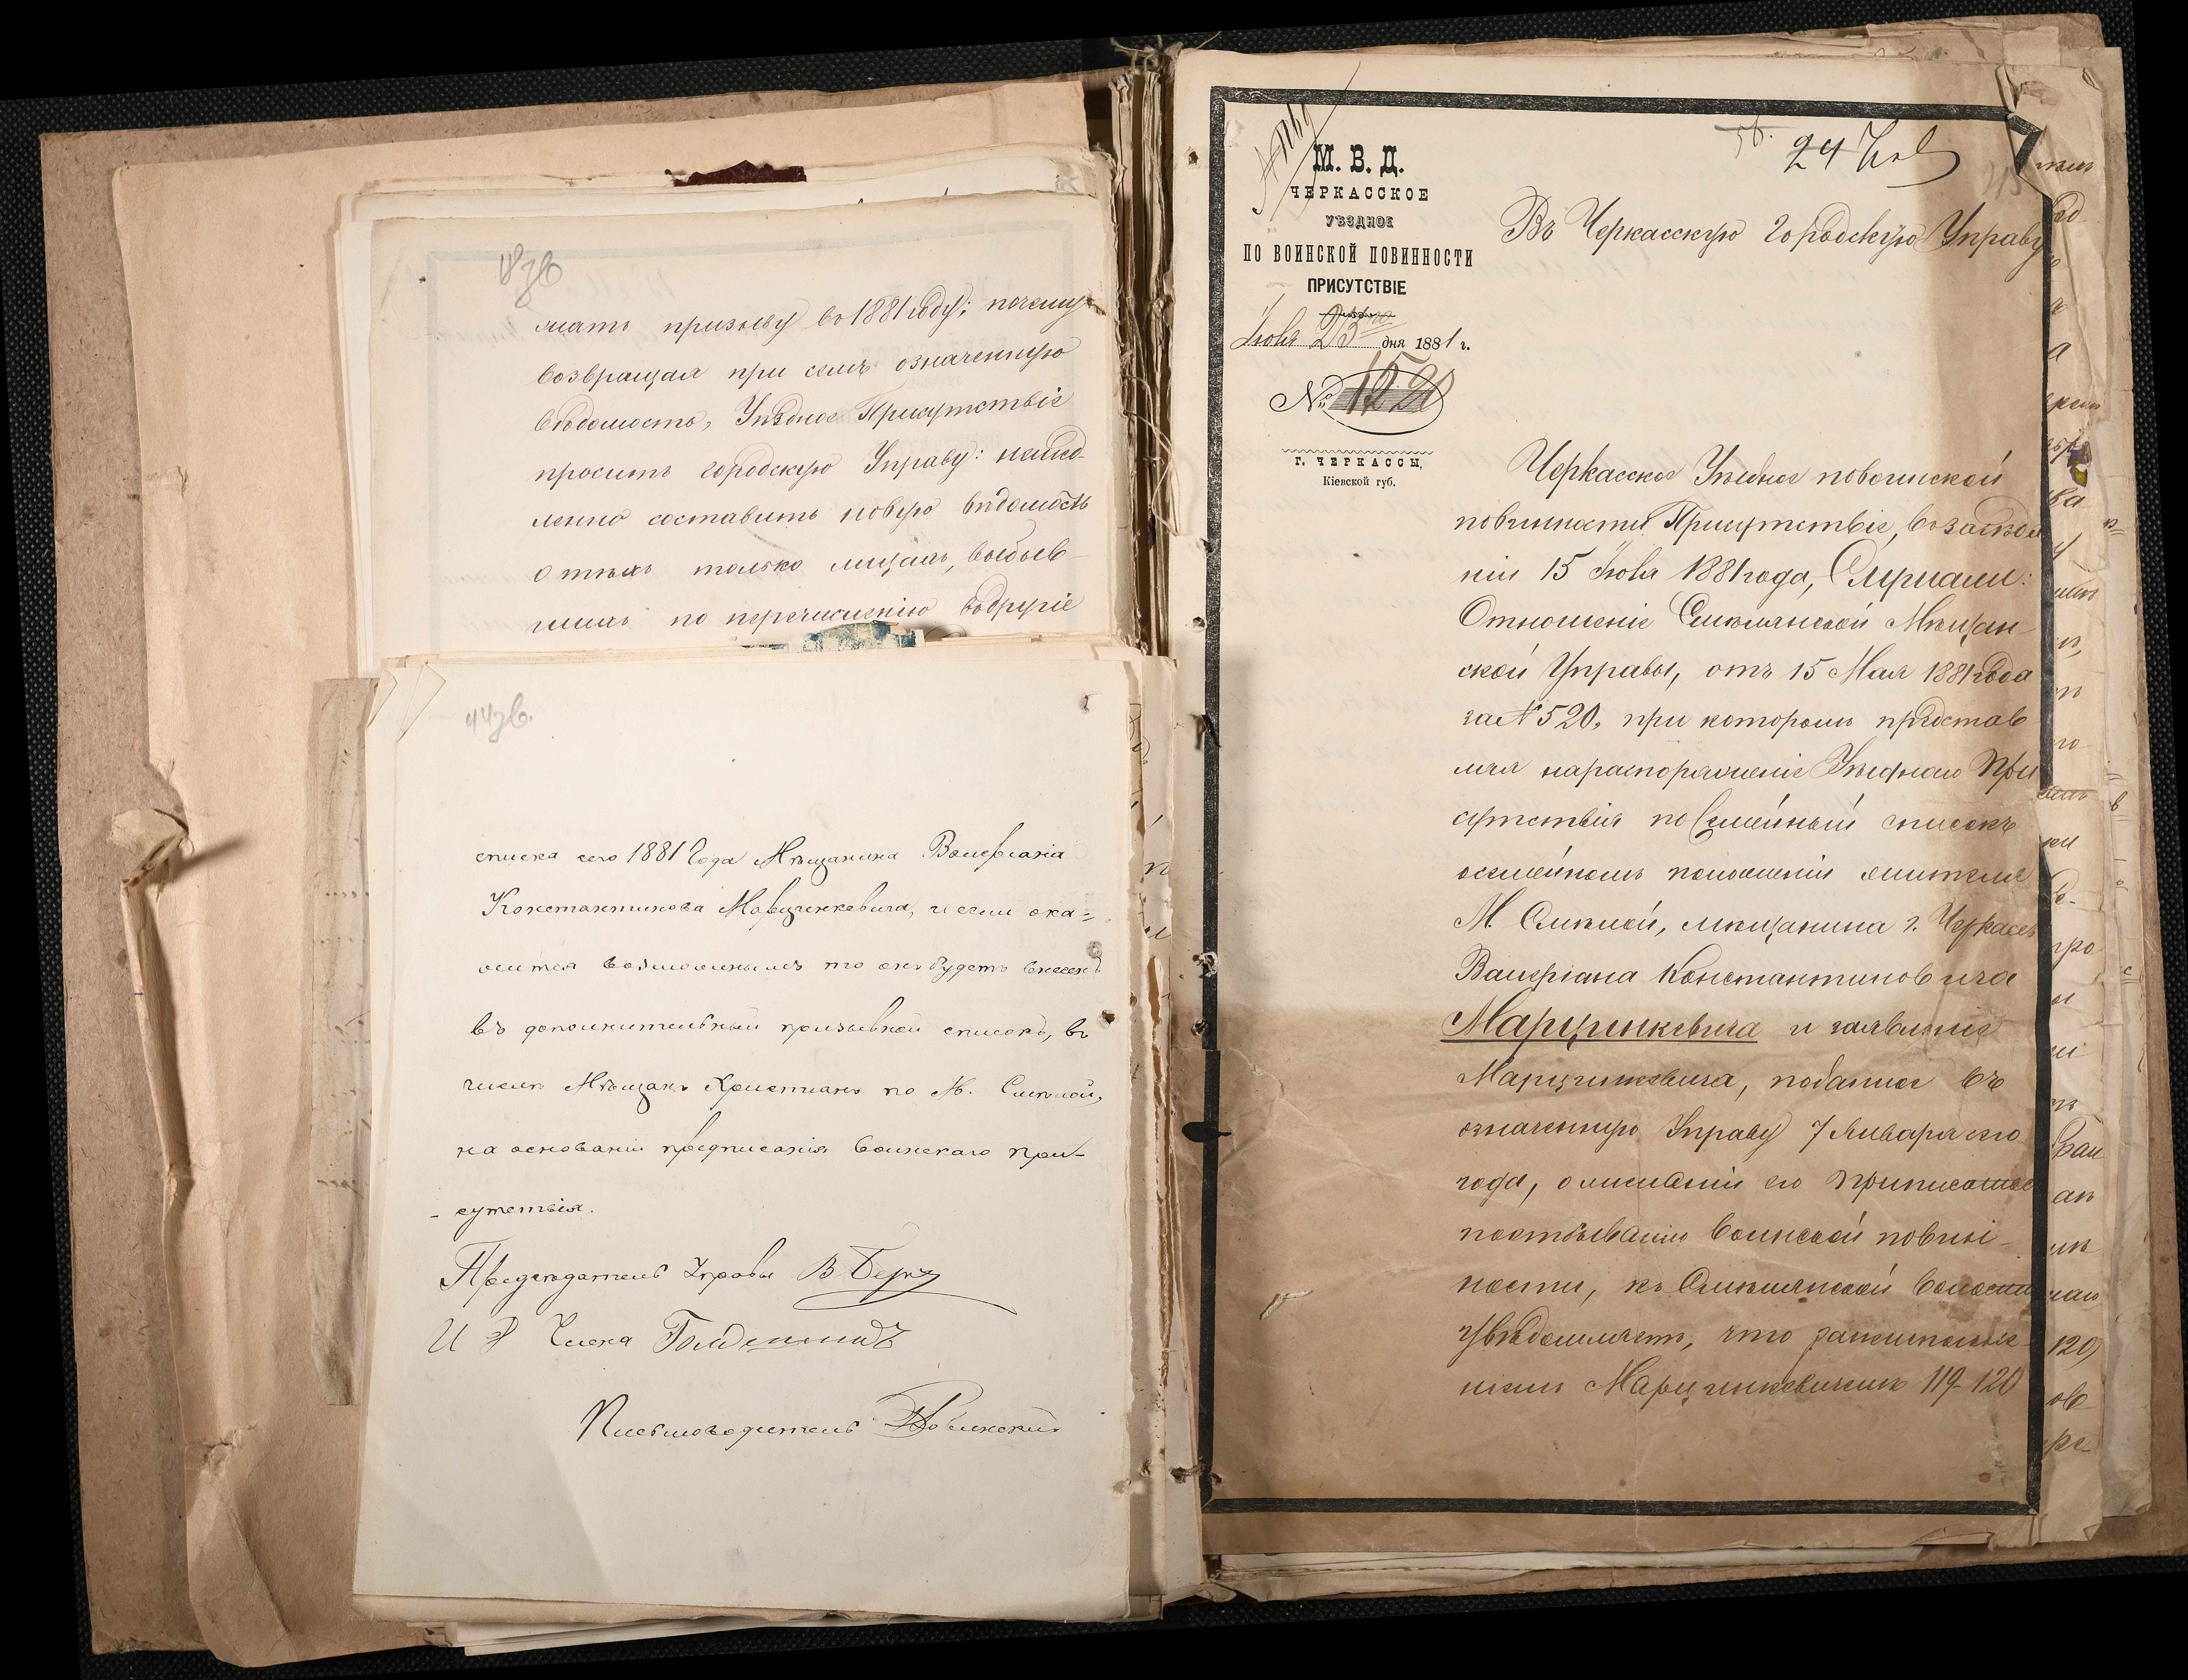 мать призыву въ 1881 году; почему
возвращая при семъ означенную
вѣдомость, Уѣздное Присутствіе
просить городскую Управу: немед-
ленно составить новую вѣдомость
о тѣхъ только лицахъ, выбыв-
шихъ по перечисленію въ другіе
списка сего 1881 года Мѣщанина Валеріана
Константинова Марцинкевича, и если ока=
жится возможнымъ то онъ будетъ внесенъ
въ дополнительный призывной списокъ, въ
числѣ Мѣщанъ Христіанъ по М. Смѣлой,
на основаніи предписанія Воинскаго при-
- сутствія.
Предсѣдатель Управы В Берг
И Д Члена
Письмоводитель
М. В. Д.
ЧЕРКАССКОЕ
УѢЗДНОЕ
ПО ВОИНСКОЙ ПОВИННОСТИ
ПРИСУТСТВІЕ
Іюня 23 дня 1881 г.
№ 1520
Г. ЧЕРКАССЫ,
Кіевской губ.
24
Въ Черкасскую Городскую Управу
Черкасское Уѣздное по воинской
повинности Присутствіе, въ засѣда
ніи 15 Іюня 1881 года, Слушали:
Отношеніе Смѣлянской Мѣщан-
ской Управы, отъ 15 Мая 1881 года
за № 520, при которомъ представ
ляя на распоряженіе Уѣзднаго При
сутствія посемейный списокъ
о семейномъ положеніи жителя
М. Смѣлой, мѣщанина г. Черкасъ
Валеріана Константиновича
Марцинкевича и заявленіе
Марцинкевича, поданное въ
означенную Управу 7 Января сего
года, о желаніи его приписаться
по отбыванію воинской повин-
ности, къ Смѣлянской волости
увѣдомляетъ, что
ніемъ Марцинкевичемъ 119-120